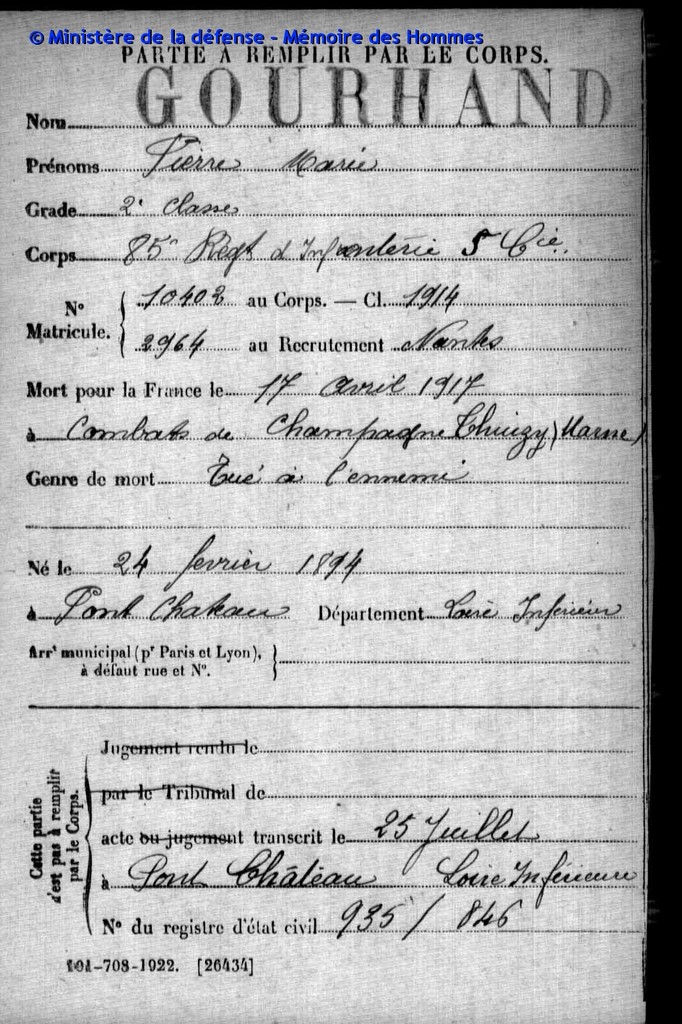 © Ministère de la défense - Mémoire des Hommes
PARTIE À REMPLIR PAR LE CORPS.
Nom GOURHAND
Prénoms Pierre Marie
Grade 2e classe
Corps 85e Regt d'Infanterie 5 Cie.
No Matricule. { 10402 au Corps. — Cl. 1914
2964 au Recrutement Nantes
Mort pour la France le 17 avril 1917
à Combats de Champagne Thuizy (Marne)
Genre de mort Tué à l'ennemi
Né le 24 fevrier 1894
à Pont Chateau Département Loire Inférieure
Arrt municipal (pr Paris et Lyon), à défaut rue et No. }
Cette partie n'est pas à remplir par le Corps.
Jugement rendu le
par le Tribunal de
acte ou jugement transcrit le 25 Juillet
à Pont Château Loire Inférieure
No du registre d'état civil 935 / 846
101-708-1922. [26434]